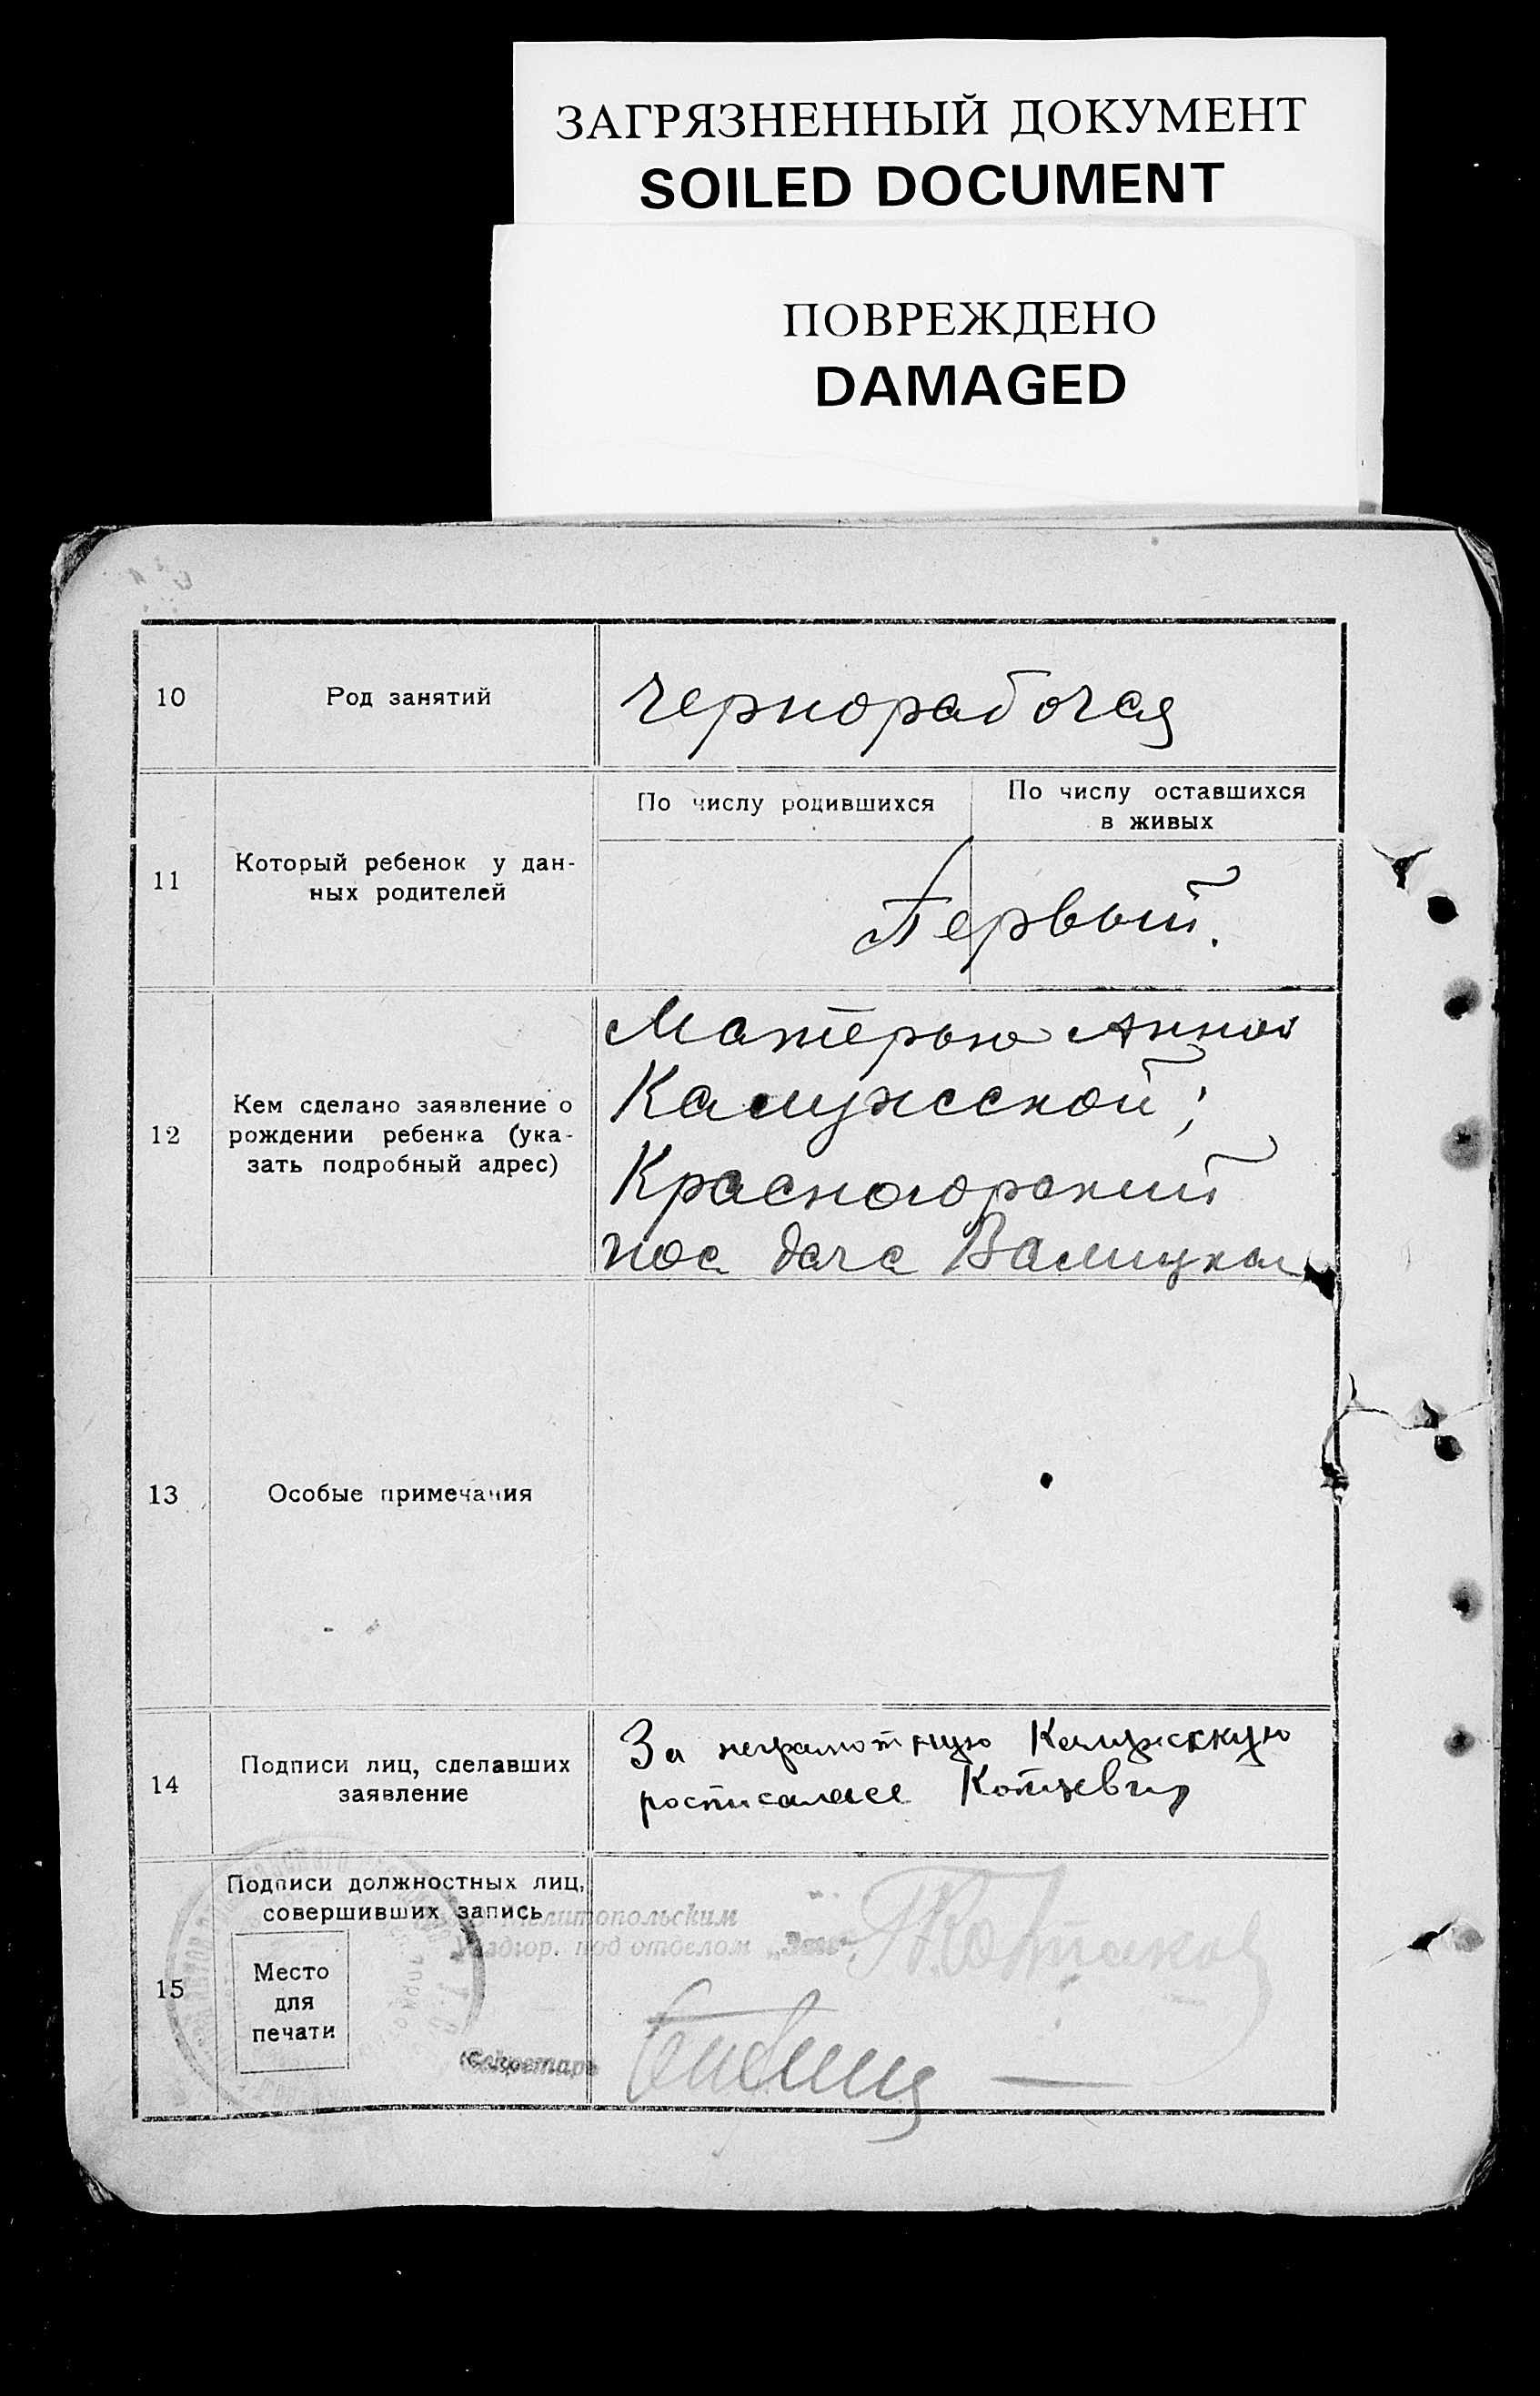 ЗАГРЯЗНЕННЫЙ ДОКУМЕНТ
SOILED DOCUMENT
ПОВРЕЖДЕНО
DAMAGED
10
Род занятий
чернорабочая
11
Который ребенок у дан-
ных родителей
По числу родившихся
По числу оставшихся
в живых
Первый.
12
Кем сделано заявление о
рождении ребенка (ука-
зать подробный адрес)
Матерью Анной
Калужской;
Красногорский
пос дача
13
Особые примечания
14
Подписи лиц, сделавших
заявление
За неграмотную Калужскую
росписалася
15
Подписи должностных лиц,
совершивших запись
Место
для
печати
Мелитопольским
под отделом
Секретарь